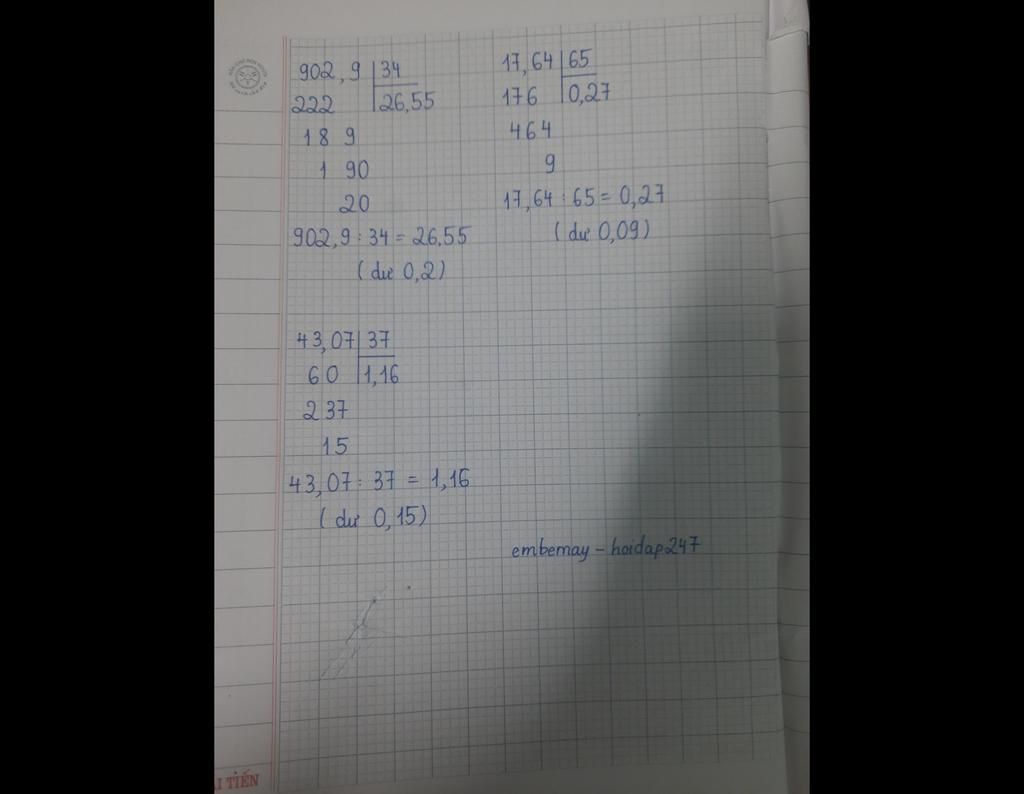 902,9 34
222 26,55
18 9
1 90
20
902,9 : 34 = 26,55
(dư 0,2)
17,64 65
176 0,27
464
9
17,64 : 65 = 0,27
(dư 0,09)
43,07 37
60 1,16
237
15
43,07 : 37 = 1,16
(dư 0,15)
embemay - hoidap247
I TIẾN